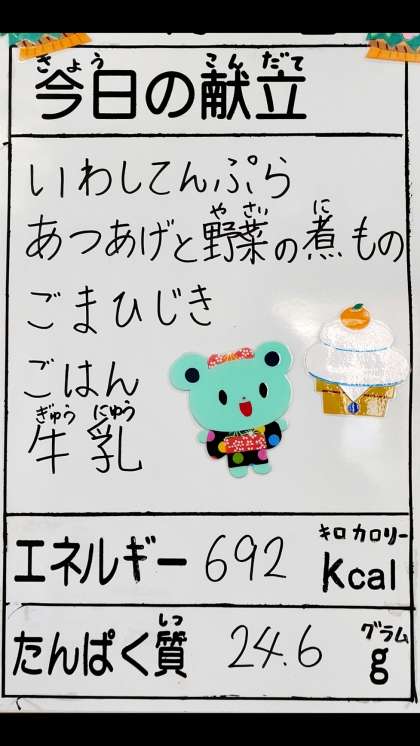 きょう こんだて
今日の献立
いわしてんぷら
やさい に
あつあげと野菜の煮もの
ごまひじき
ごはん
ぎゅうにゅう
牛乳
キロカロリー
エネルギー 692 Kcal
しつ グラム
たんぱく質 24.6 g